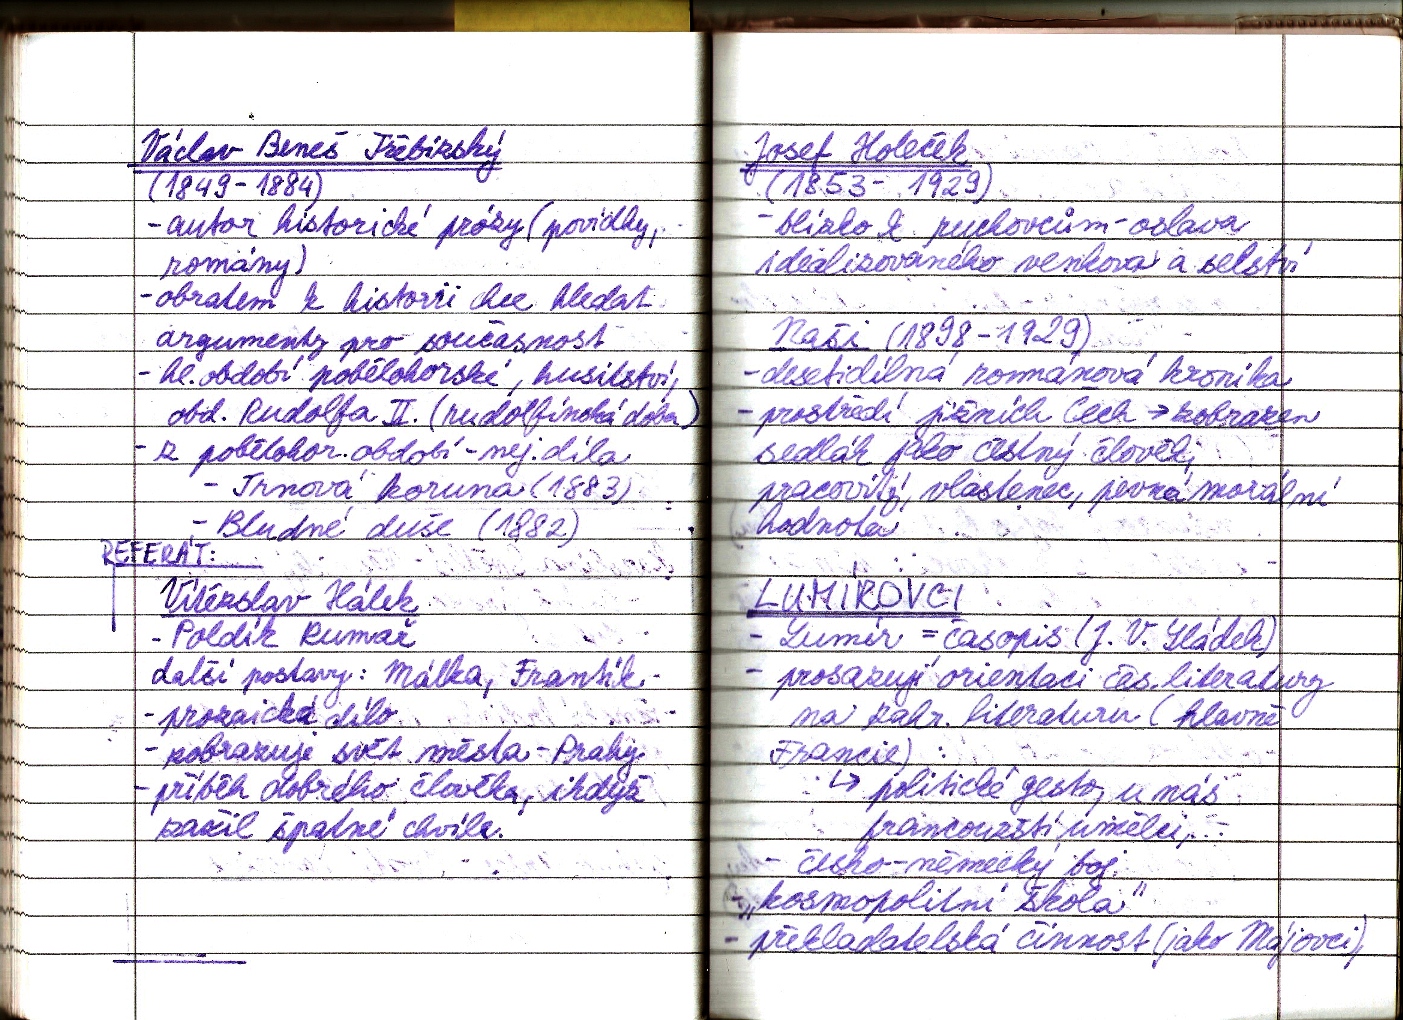 Václav Beneš Třebízský
(1849-1884)
- autor historické prózy (povídky,
romány)
- obratem k historii chce hledat
argumenty pro současnost
- hl. období pobělohorské, husitství,
obd. Rudolfa II. (rudolfínská doba)
- z pobělohor. období - nej. díla
- Trnová koruna (1883)
- Bludné duše (1882)
REFERÁT:
Vítězslav Hálek
- Poldík Rumař
další postavy: Málka, Frantík
- prozaické dílo
- zobrazuje svět města - Prahy
- příběh dobrého člověka, ikdyž
zažil špatné chvíle.
Josef Holeček
(1853- 1929)
- blízko k ruchovcům - oslava
idealizovaného venkova a selství
Naši (1898-1929)
- desetidílná románová kronika
- prostředí jižních Čech → zobrazen
sedlák jako čestný člověk,
pracovitý, vlastenec, pevná morální
hodnota
LUMÍROVCI
- Lumír = časopis (J. V. Sládek)
- prosazují orientaci čes. literatury
na zahr. literaturu (hlavně
Francie)
↳ politické gesto, u nás
francouzští umělci,
- česko-německý boj
- „kosmopolitní škola"
- překladatelská činnost (jako Májovci)